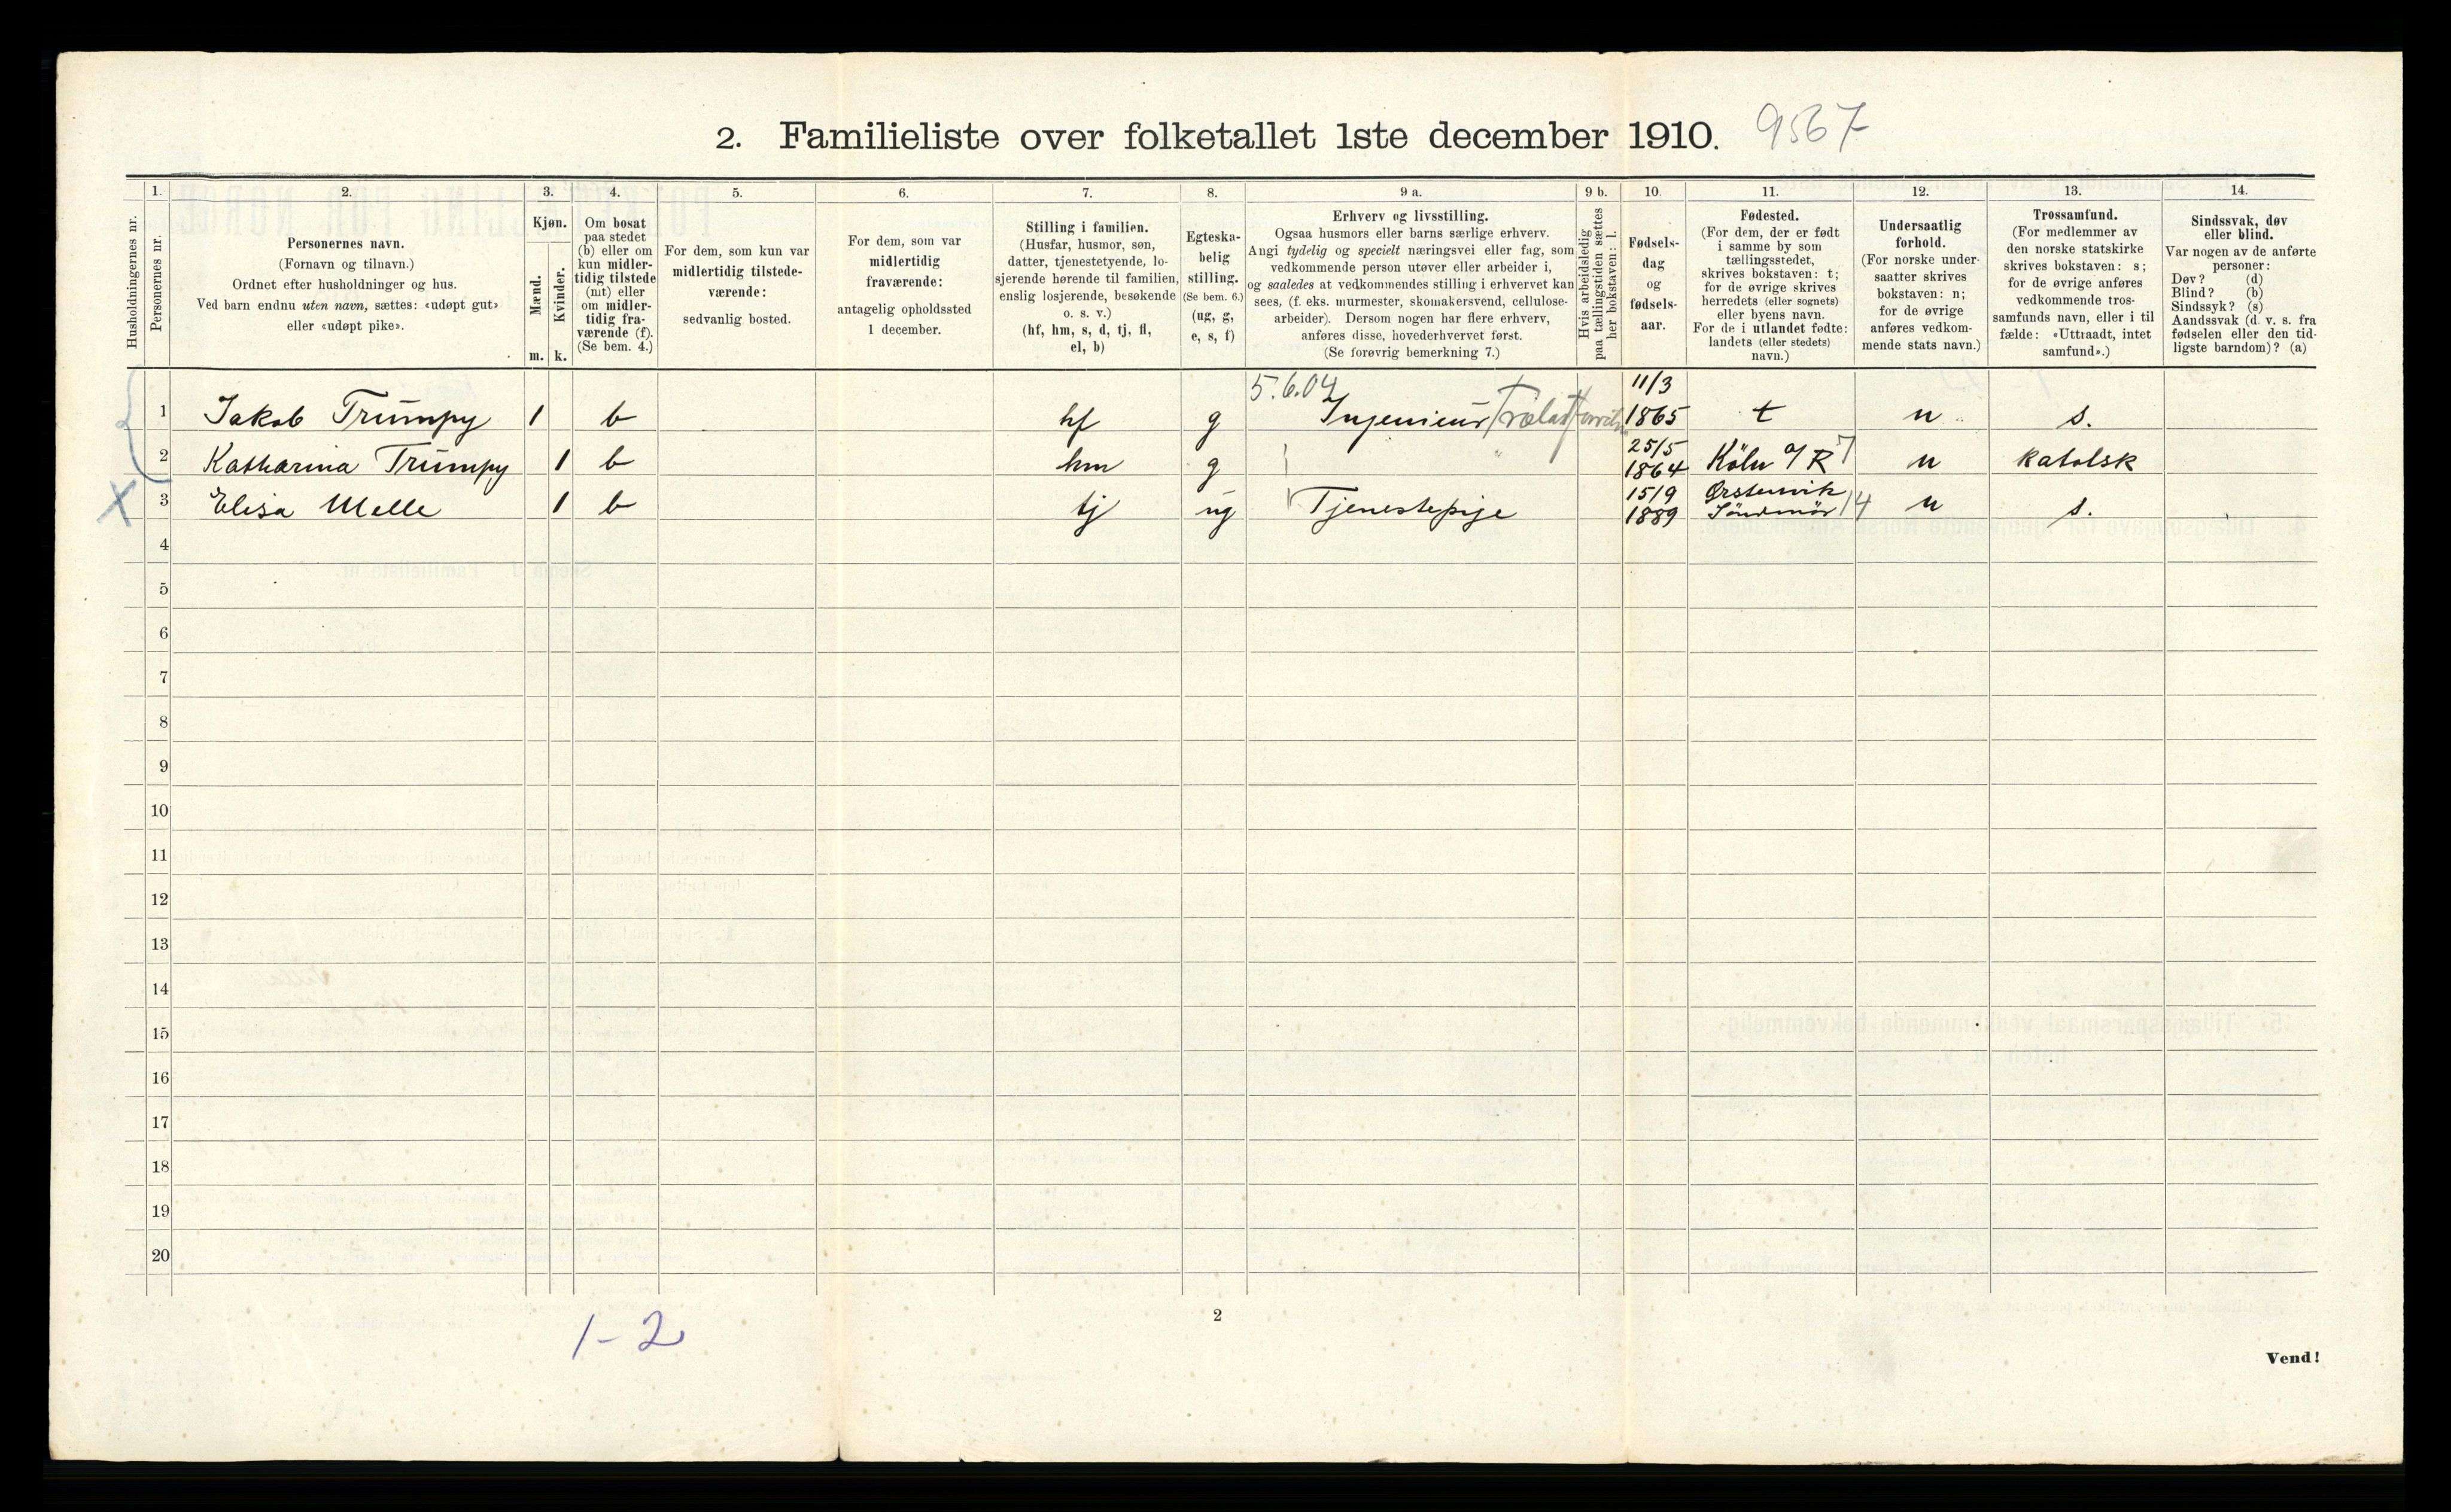 2. Familieliste over folketallet 1ste december 1910. 9567
Husholdningernes nr.
1.
Personernes nr.
2.
Personernes navn.
(Fornavn og tilnavn.)
Ordnet efter husholdninger og hus.
Ved barn endnu uten navn, sættes: «udøpt gut»
eller «udøpt pike».
3.
Kjøn.
Mænd.
Kvinder.
m. k.
4.
Om bosat
paa stedet
(b) eller om
kun midler-
tidig tilstede
(mt) eller
om midler-
tidig fra-
værende (f).
(Se bem. 4.)
5.
For dem, som kun var
midlertidig tilstede-
værende:
sedvanlig bosted.
6.
For dem, som var
midlertidig
fraværende:
antagelig opholdssted
1 december.
7.
Stilling i familien.
(Husfar, husmor, søn,
datter, tjenestetyende, lo-
sjerende hørende til familien,
enslig losjerende, besøkende
o. s. v.)
(hf, hm, s, d, tj, fl,
el, b)
8.
Egteska-
belig
stilling.
(Se bem. 6.)
(ug, g,
e, s, f)
9 a.
Erhverv og livsstilling.
Ogsaa husmors eller barns særlige erhverv.
Angi tydelig og specielt næringsvei eller fag, som
vedkommende person utøver eller arbeider i,
og saaledes at vedkommendes stilling i erhvervet kan
sees, (f. eks. murmester, skomakersvend, cellulose-
arbeider). Dersom nogen har flere erhverv,
anføres disse, hovederhvervet først.
(Se forøvrig bemerkning 7.)
9 b.
Hvis arbeidsledig
paa tællingstiden sættes
her bokstaven: l.
10.
Fødsels-
dag
og
fødsels-
aar.
11.
Fødested.
(For dem, der er født
i samme by som
tællingsstedet,
skrives bokstaven: t;
for de øvrige skrives
herredets (eller sognets)
eller byens navn.
For de i utlandet fødte:
landets (eller stedets)
navn.)
12.
Undersaatlig
forhold.
(For norske under-
saatter skrives
bokstaven: n;
for de øvrige
anføres vedkom-
mende stats navn.)
13.
Trossamfund.
(For medlemmer av
den norske statskirke
skrives bokstaven: s;
for de øvrige anføres
vedkommende tros-
samfunds navn, eller i til
fælde: «Uttraadt, intet
samfund».)
14.
Sindssvak, døv
eller blind.
Var nogen av de anførte
personer:
Døv? (d)
Blind? (b)
Sindssyk? (s)
Aandssvak (d. v. s. fra
fødselen eller den tid-
ligste barndom)? (a)
5.6.04 11/3
1 Jakob Trumpy 1 b hf g Ingeniør 1865 t n s.
25/5
2 Katharina Trumpy 1 b hm g 1864 Köln a/R 7 n katolsk
X 15/9 Ørstenvik
3 Elisa Melle 1 b tj ug Tjenestepige 1889 Söndmör 14 n s.
4
5
6
7
8
9
10
11
12
13
14
15
16
17
18
19
20
1-2
2
Vend!